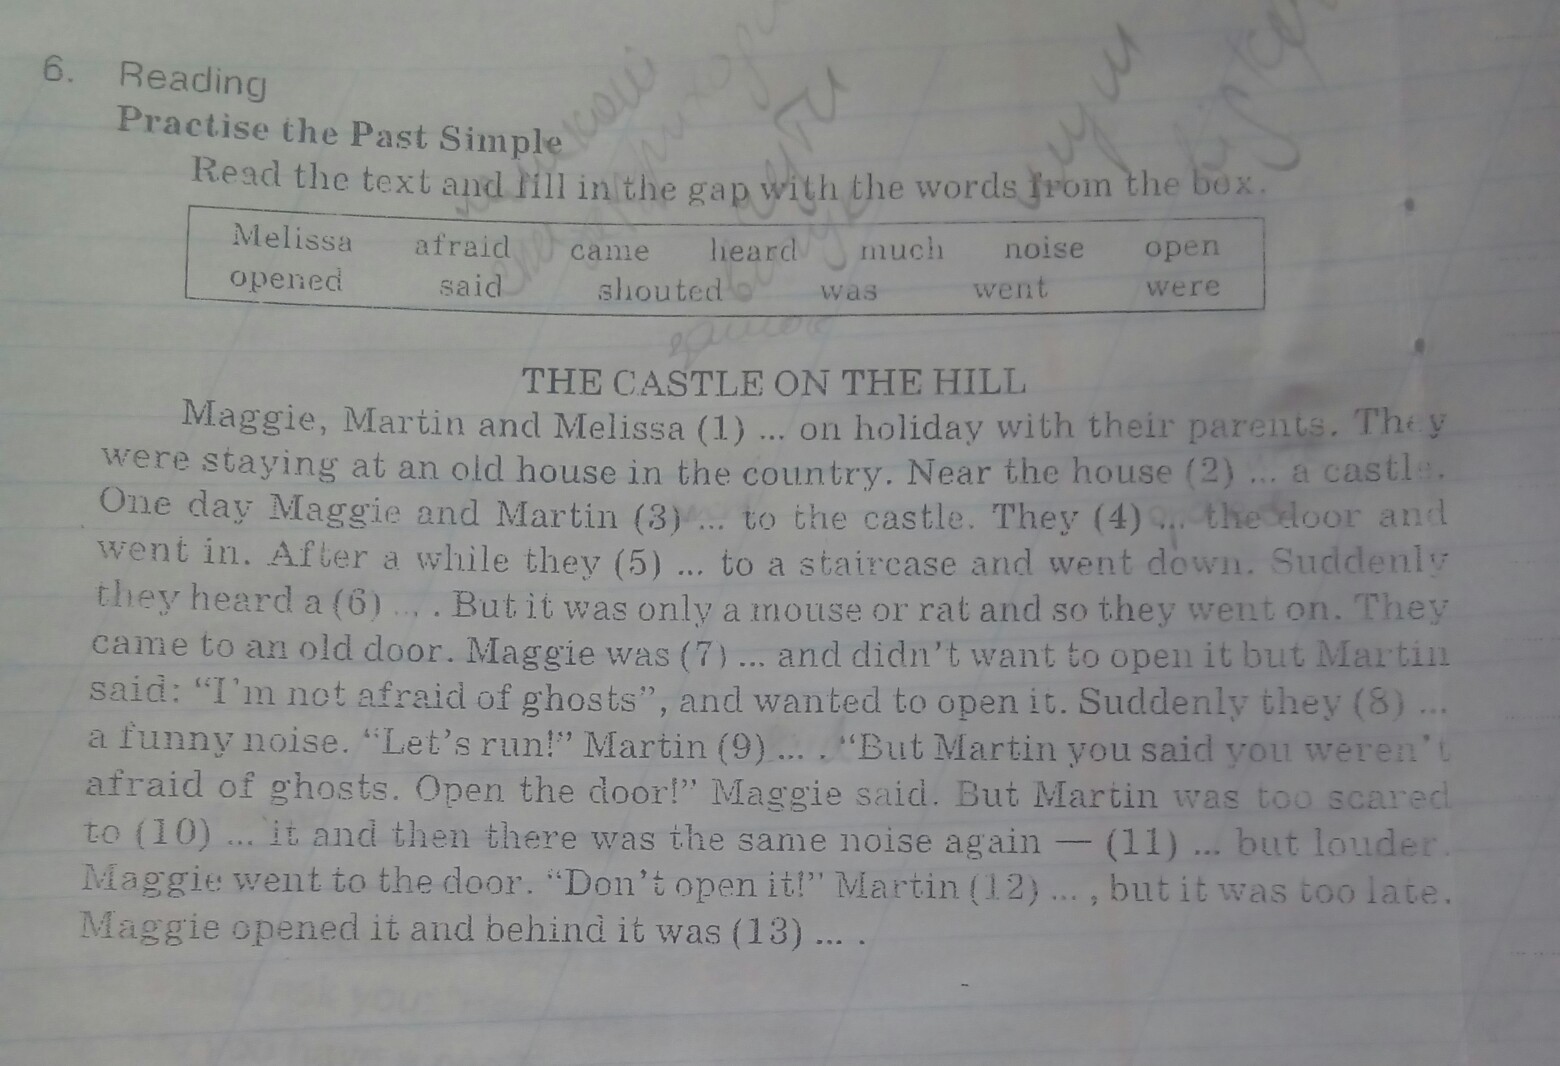 6. Reading
Practise the Past Simple
Read the text and fill in the gap with the words from the box.
Melissa afraid came heard much noise open
opened said shouted was went were
THE CASTLE ON THE HILL
Maggie, Martin and Melissa (1) ... on holiday with their parents. They
were staying at an old house in the country. Near the house (2) ... a castle.
One day Maggie and Martin (3) ... to the castle. They (4) ... the door and
went in. After a while they (5) ... to a staircase and went down. Suddenly
they heard a (6) ... . But it was only a mouse or rat and so they went on. They
came to an old door. Maggie was (7) ... and didn't want to open it but Martin
said: “I'm not afraid of ghosts”, and wanted to open it. Suddenly they (8) ...
a funny noise. “Let's run!” Martin (9) ... . “But Martin you said you weren't
afraid of ghosts. Open the door!” Maggie said. But Martin was too scared
to (10) ... it and then there was the same noise again — (11) ... but louder.
Maggie went to the door. “Don't open it!” Martin (12) ... , but it was too late.
Maggie opened it and behind it was (13) ... .